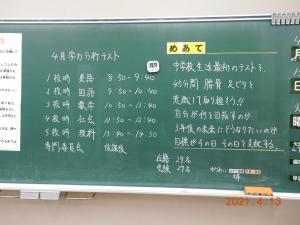 4月学力分析テスト
1校時 英語 8:50-9:40
2校時 国語 9:50-10:40
3校時 数学 10:50-11:40
4校時 社会 11:50-12:40
5校時 理科 13:40-14:30
専門委員会 放課後
めあて
中学校生活最初のテストを、
45分間 腰骨 足どりを
意識して取り組もう!!
自分が何を目指すのか
3年後の未来にどうなりたいのか
目標が今の日 その日を支配する。
在籍 29名
受験 27名
2021.4.13
月
日
曜